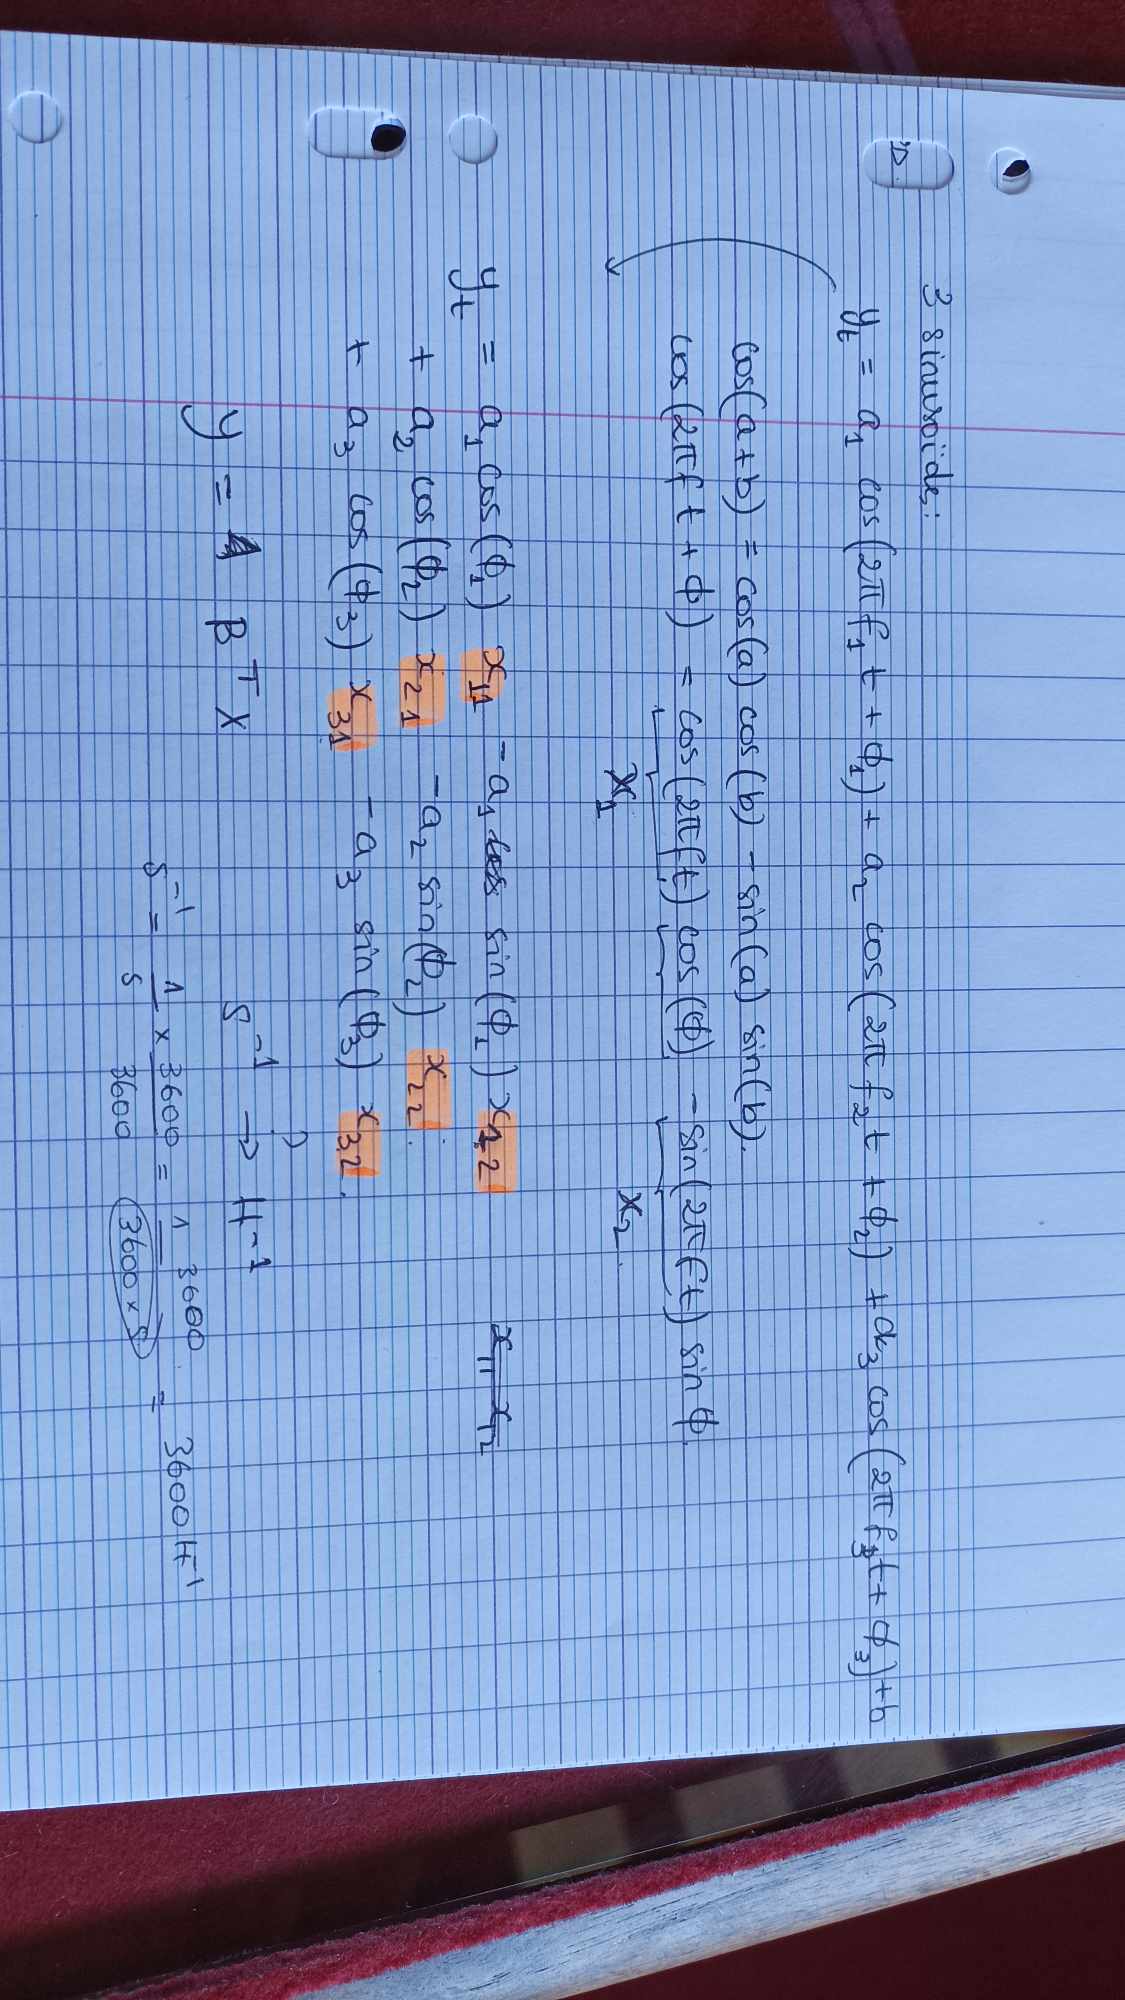 3 sinusoïde:
y_t = a_1 cos(2π f_1 t + ϕ_1) + a_2 cos(2π f_2 t + ϕ_2) + a_3 cos(2π f_3 t + ϕ_3) + b
cos(a+b) = cos(a) cos(b) - sin(a) sin(b).
cos(2πf t + ϕ) = cos(2πft) cos(ϕ) - sin(2πft) sin ϕ
x_1 x_2.
y_t = a_1 cos(ϕ_1) x_11 - a_1 sin(ϕ_1) x_12 x_11 x_12
+ a_2 cos(ϕ_2) x_21 - a_2 sin(ϕ_2) x_22.
+ a_3 cos(ϕ_3) x_31 - a_3 sin(ϕ_3) x_32.
?
y = B^T X s^-1 → H^-1
s^-1 = 1/s × 3600/3600 = 1 3600/(3600 × s) = 3600 H^-1